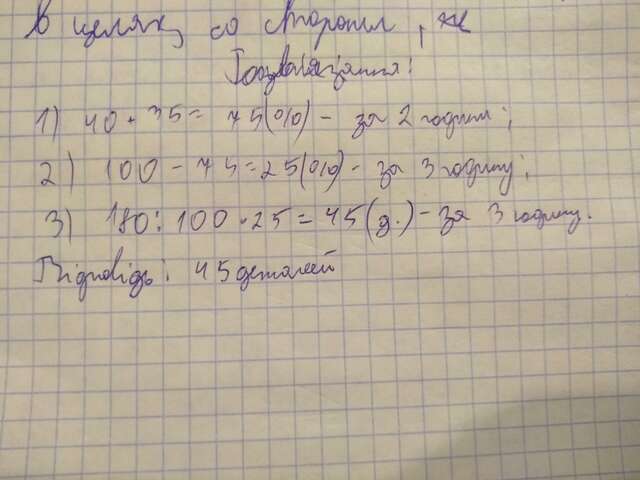 в целях, со сторони, не
Розв'язання:
1) 40 + 35 = 75(%) - за 2 години;
2) 100 - 75 = 25(%) - за 3 годину;
3) 180 : 100 · 25 = 45(д.) - за 3 годину.
Відповідь: 45 деталей